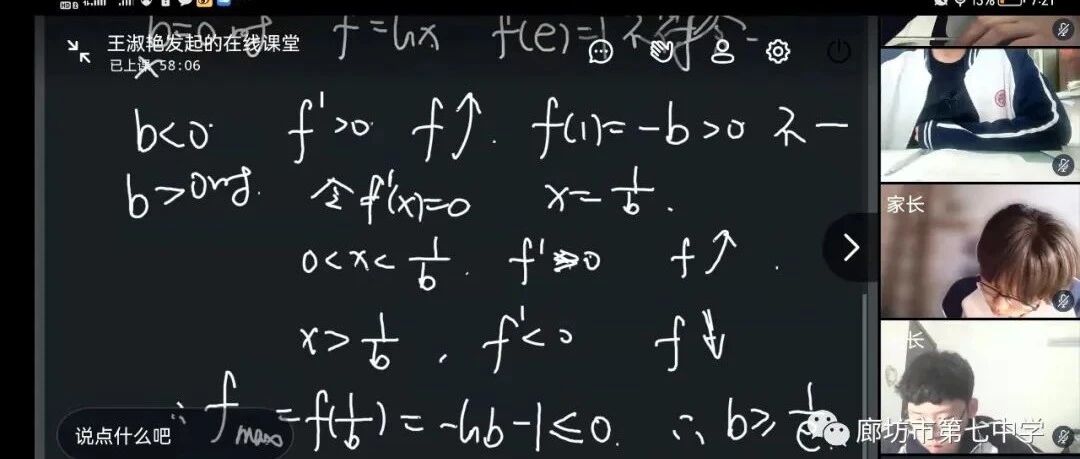 13% 7:21
b=0时 f=lnx f(e)=1 不符合
王淑艳发起的在线课堂
已上课 58:06
b<0 f'>0 f↑. f(1)=-b>0 不一
b>0时. 令f'(x)=0 x=1/b.
家长
0<x<1/b. f'>0 f↑.
x>1/b, f'<0 f↓
长
∴ f max = f(1/b) = -lnb-1≤0. ∴ b≥1/e
说点什么吧
廊坊市第七中学